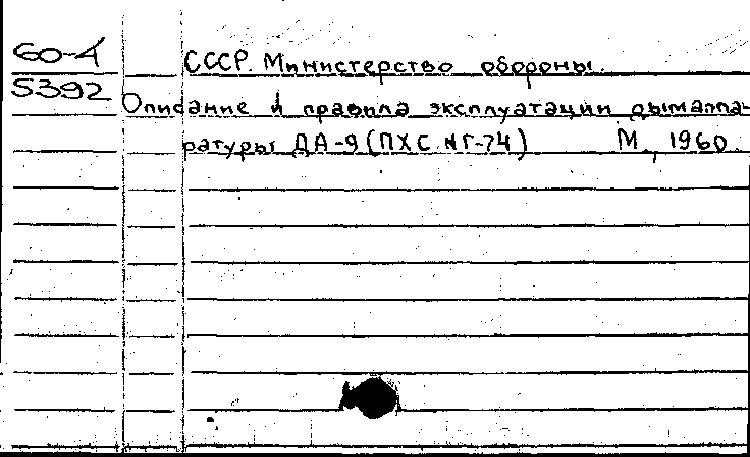 60-4
5392
СССР. Министерство обороны.
Описание и правила эксплуатации дымаппа-
ратуры ДА-9 (ПХС НГ-74) М., 1960.